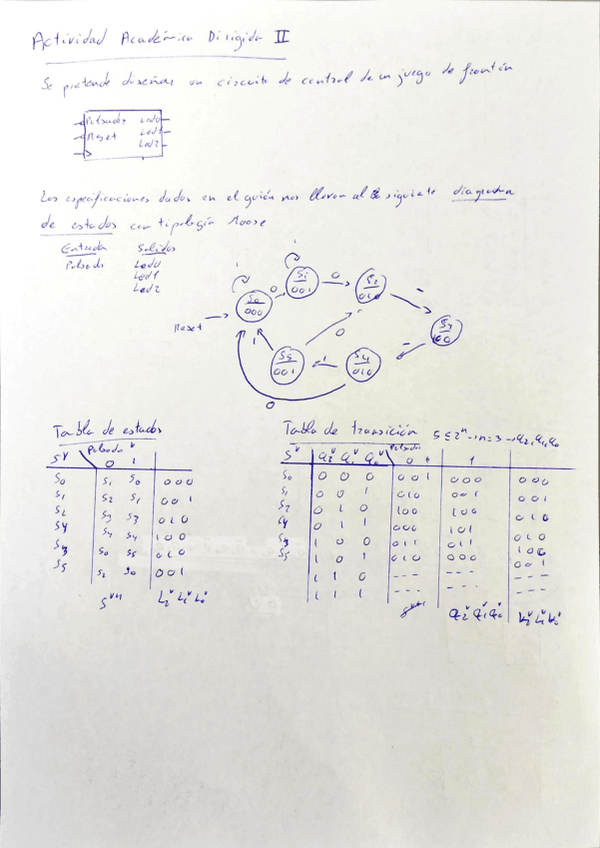 Actividad Académica Dirigida II
Se pretende diseñar un circuito de control de un juego de frontón
Pulsador Led0
Reset Led1
Led2
Las especificaciones dadas en el guión nos llevan al siguiente diagrama
de estados con tipología Moore
Entrada Salidas
Pulsador Led0
Led1
Led2
Reset
S0 000
S1 001
S2 010
S3 100
S4 010
S5 001
Tabla de estados
Tabla de transición 5≤2^n→n=3→q2,q1,q0
S^v Pulsador^v 0 1
S0 S1 S0 000
S1 S2 S1 001
S2 S3 S3 010
S4 S4 S4 100
S3 S0 S5 010
S5 S2 S0 001
S^v+1 L2^v L1^v L0^v
S^v Q2^v Q1^v Q0^v Pulsador 0 1
S0 0 0 0 001 000 000
S1 0 0 1 010 001 001
S2 0 1 0 100 100 010
S4 0 1 1 000 101 010
S3 1 0 0 011 011 100
S5 1 0 1 010 000 001
1 1 0 --- ---
1 1 1 --- ---
S^v+1 Q2^v Q1^v Q0^v L2^v L1^v L0^v